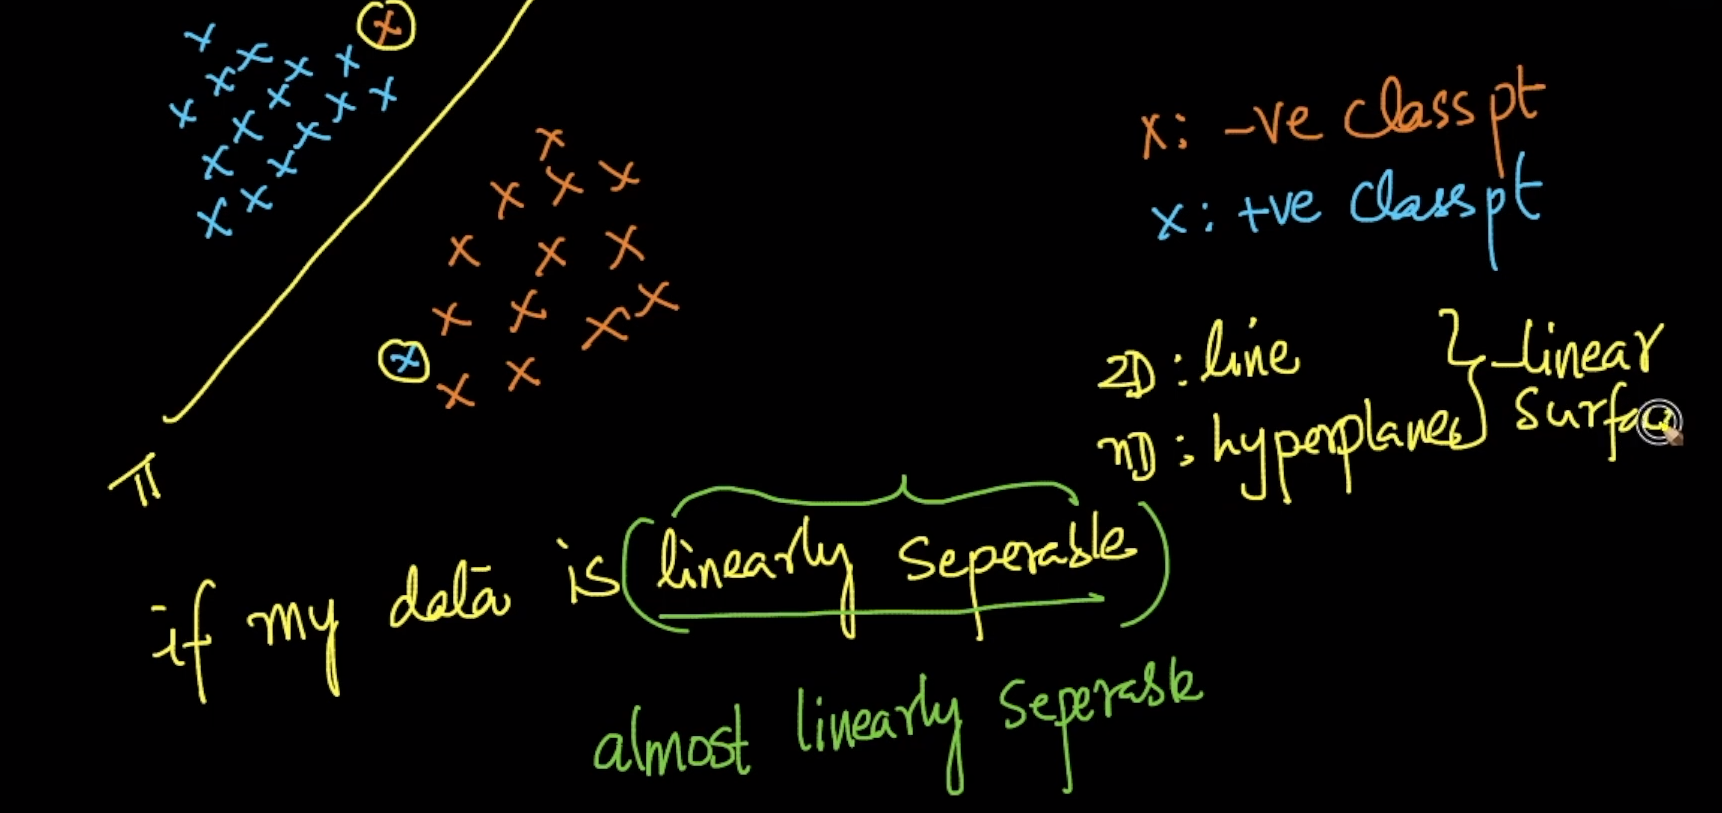 x: -ve class pt
x: +ve class pt
2D: line
nD: hyperplanes
linear
surfac
π
if my data is (linearly seperable)
almost linearly seperable